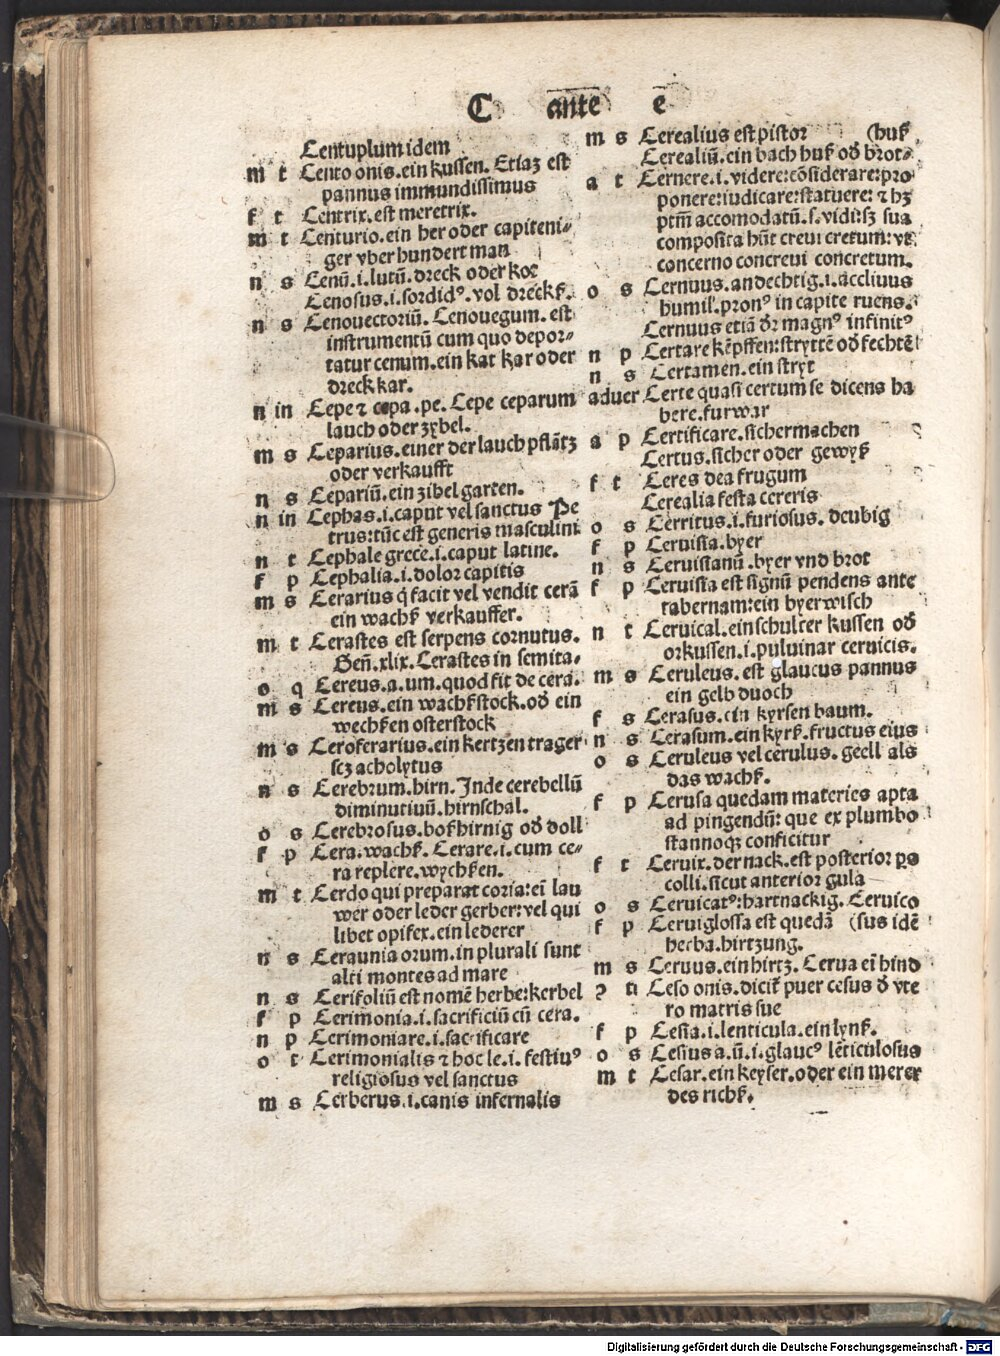 C anteͤ e
Centuplum idem
m t Cento onis. ein kussen. Etiaꝫ est
pannus immundissimus
f t Centrix. est meretrix.
m t Centurio. ein her oder capiteni-
ger vber hundert man
n s Cenū. i. lutū. dreck oder kot
Cenosus. i. sordidꝰ. vol dreckß.
n s Cenouectoriū. Cenouegum. est
instrumentū cum quo depor-
tatur cenum. ein kat kar oder
dreck kar.
n in Cepe ⁊ cepa .pe. Cepe ceparum
lauch oder zybel.
m s Ceparius. einer der lauch pflātz
oder verkaufft
n s Cepariū. ein zibel garten.
n in Cephas. i. caput vel sanctus Pe
trus: tūc est generis masculini
n t Cephale grece. i. caput latine.
f p Cephalia. i. dolor capitis
m s Cerarius q̄ facit vel vendit cerā
ein wachß verkauffer.
m t Cerastes est serpens cornutus.
Geñ. xlix. Cerastes in semita.
o q Cereus. a. um. quod fit de cera.
m s Cereus. ein wachßstock. oď ein
wechßen osterstock
m s Ceroferarius. ein kertzen trager
scꝫ acholytus
n s Cerebrum. hirn. Inde cerebellū
diminutiuū. hirnschal.
o s Cerebrosus. boßhirnig oď doll
f p Cera. wachß. Cerare. i. cum ce-
ra replere. wychßen.
m t Cerdo qui preparat coria: eī lau
wer oder leder gerber: vel qui
libet opifex. ein lederer
n s Ceraunia orum. in plurali sunt
alti montes ad mare
n s Cerifoliū est nomē herbe: kerbel
f p Cerimonia. i. sacrificiū cū cera.
n p Cerimoniare. i. sacrificare
o t Cerimonialis ⁊ hoc le. i. festiuꝰ
religiosus vel sanctus
m s Cerberus. i. canis infernalis
m s Cerealius est pistor (huß
Cerealiū. ein bach huß oď brot-
a t Cernere. i. videre: cōsiderare: pro
ponere: iudicare: statuere: ⁊ hꝫ
ptm̄ accomodatū. s. vidi: sꝫ sua
composita hn̄t creui cretum: vt
concerno concreui concretum.
o s Cernuus. andechtig. i. accliuus
humil. pronꝰ in capite ruens.
Cernuus etiā dr̄ magnꝰ infinitꝰ
n p Certare kēpffen: stryttē oď fechtē
n s Certamen. ein stryt
aduer Certe quasi certum se dicens ha
bere. furwar
a p Certificare. sicher machen
Certus. sicher oder gewyß
f t Ceres dea frugum
Cerealia festa cereris
o s Cerritus. i. furiosus. deubig
f p Ceruisia. byer
n s Ceruisianū. byer vnd brot
f p Ceruisia est signū pendens ante
tabernam: ein byerwisch
n t Ceruical. ein schulter kussen oď
orkussen. i. puluinar ceruicis.
m s Ceruleus. est glaucus pannus
ein gelb duoch
f s Cerasus. ein kyrsen baum.
n s Cerasum. ein kyrß. fructus eius
o s Ceruleus vel cerulus. geell als
das wachß.
f p Cerusa quedam materies apta
ad pingendū: que ex plumbo
stannoqꝫ conficitur
f t Ceruix. der nack. est posterior ps
colli. sicut anterior gula
o s Ceruicatꝰ: hartnackig. Ceruico
f p Ceruiglossa est quedā (sus idē
herba. hirtzung.
m s Ceruus. ein hirtz. Cerua eī hind
? n Ceso onis. dicit̄ puer cesus ď vte
ro matris sue
f p Cesia. i. lenticula. ein lynß.
o s Cesius a. ū. i. glaucꝰ lēticulosus
m t Cesar. ein keyser. oder ein merer
des richß.
Digitalisierung gefördert durch die Deutsche Forschungsgemeinschaft - DFG